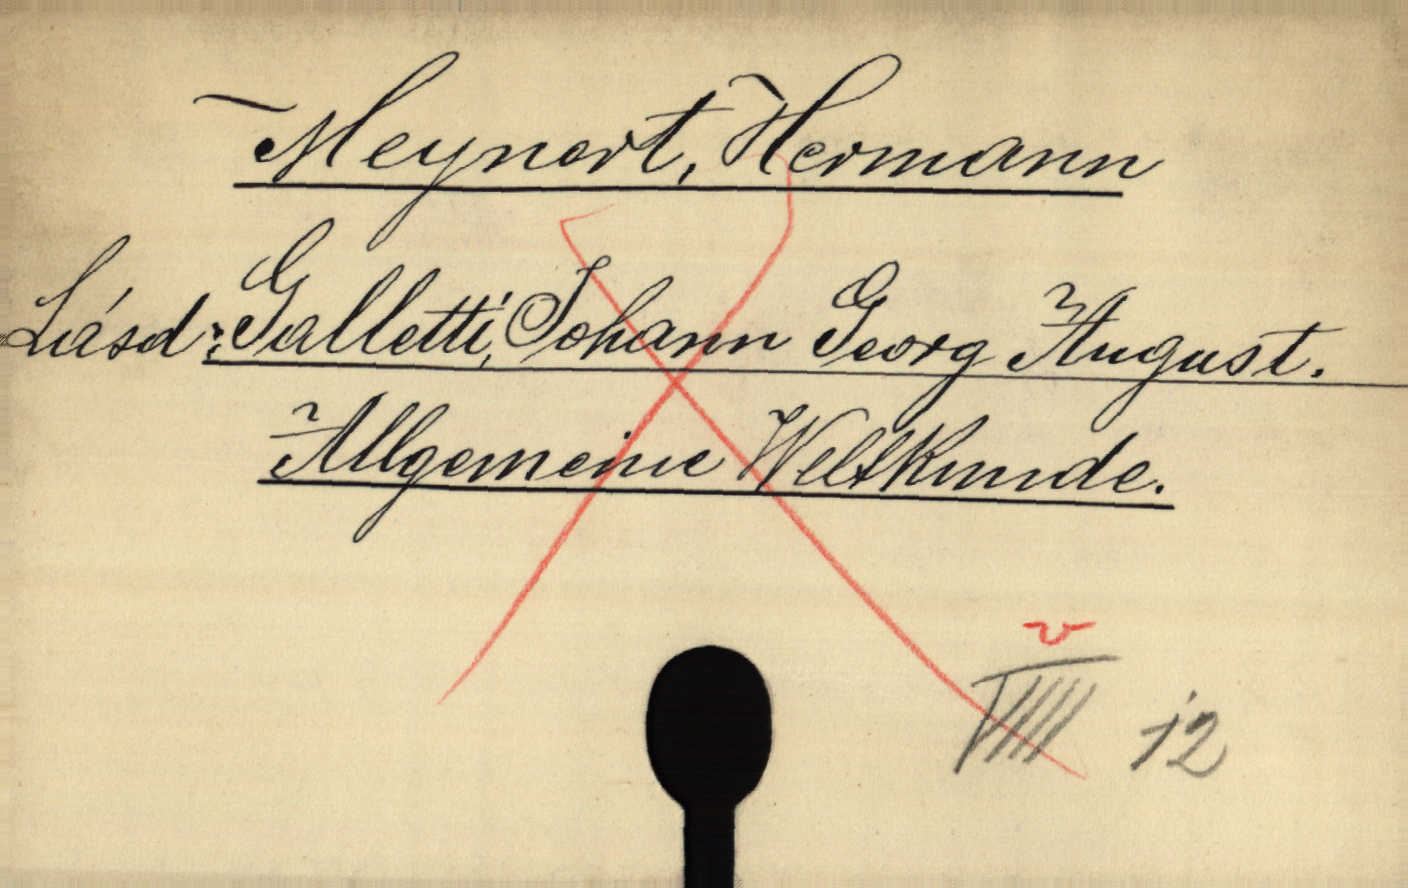 Meynert, Hermann
Lásd: Galletti, Johann Georg August.
Allgemeine Weltkunde.
v
VIIII 12